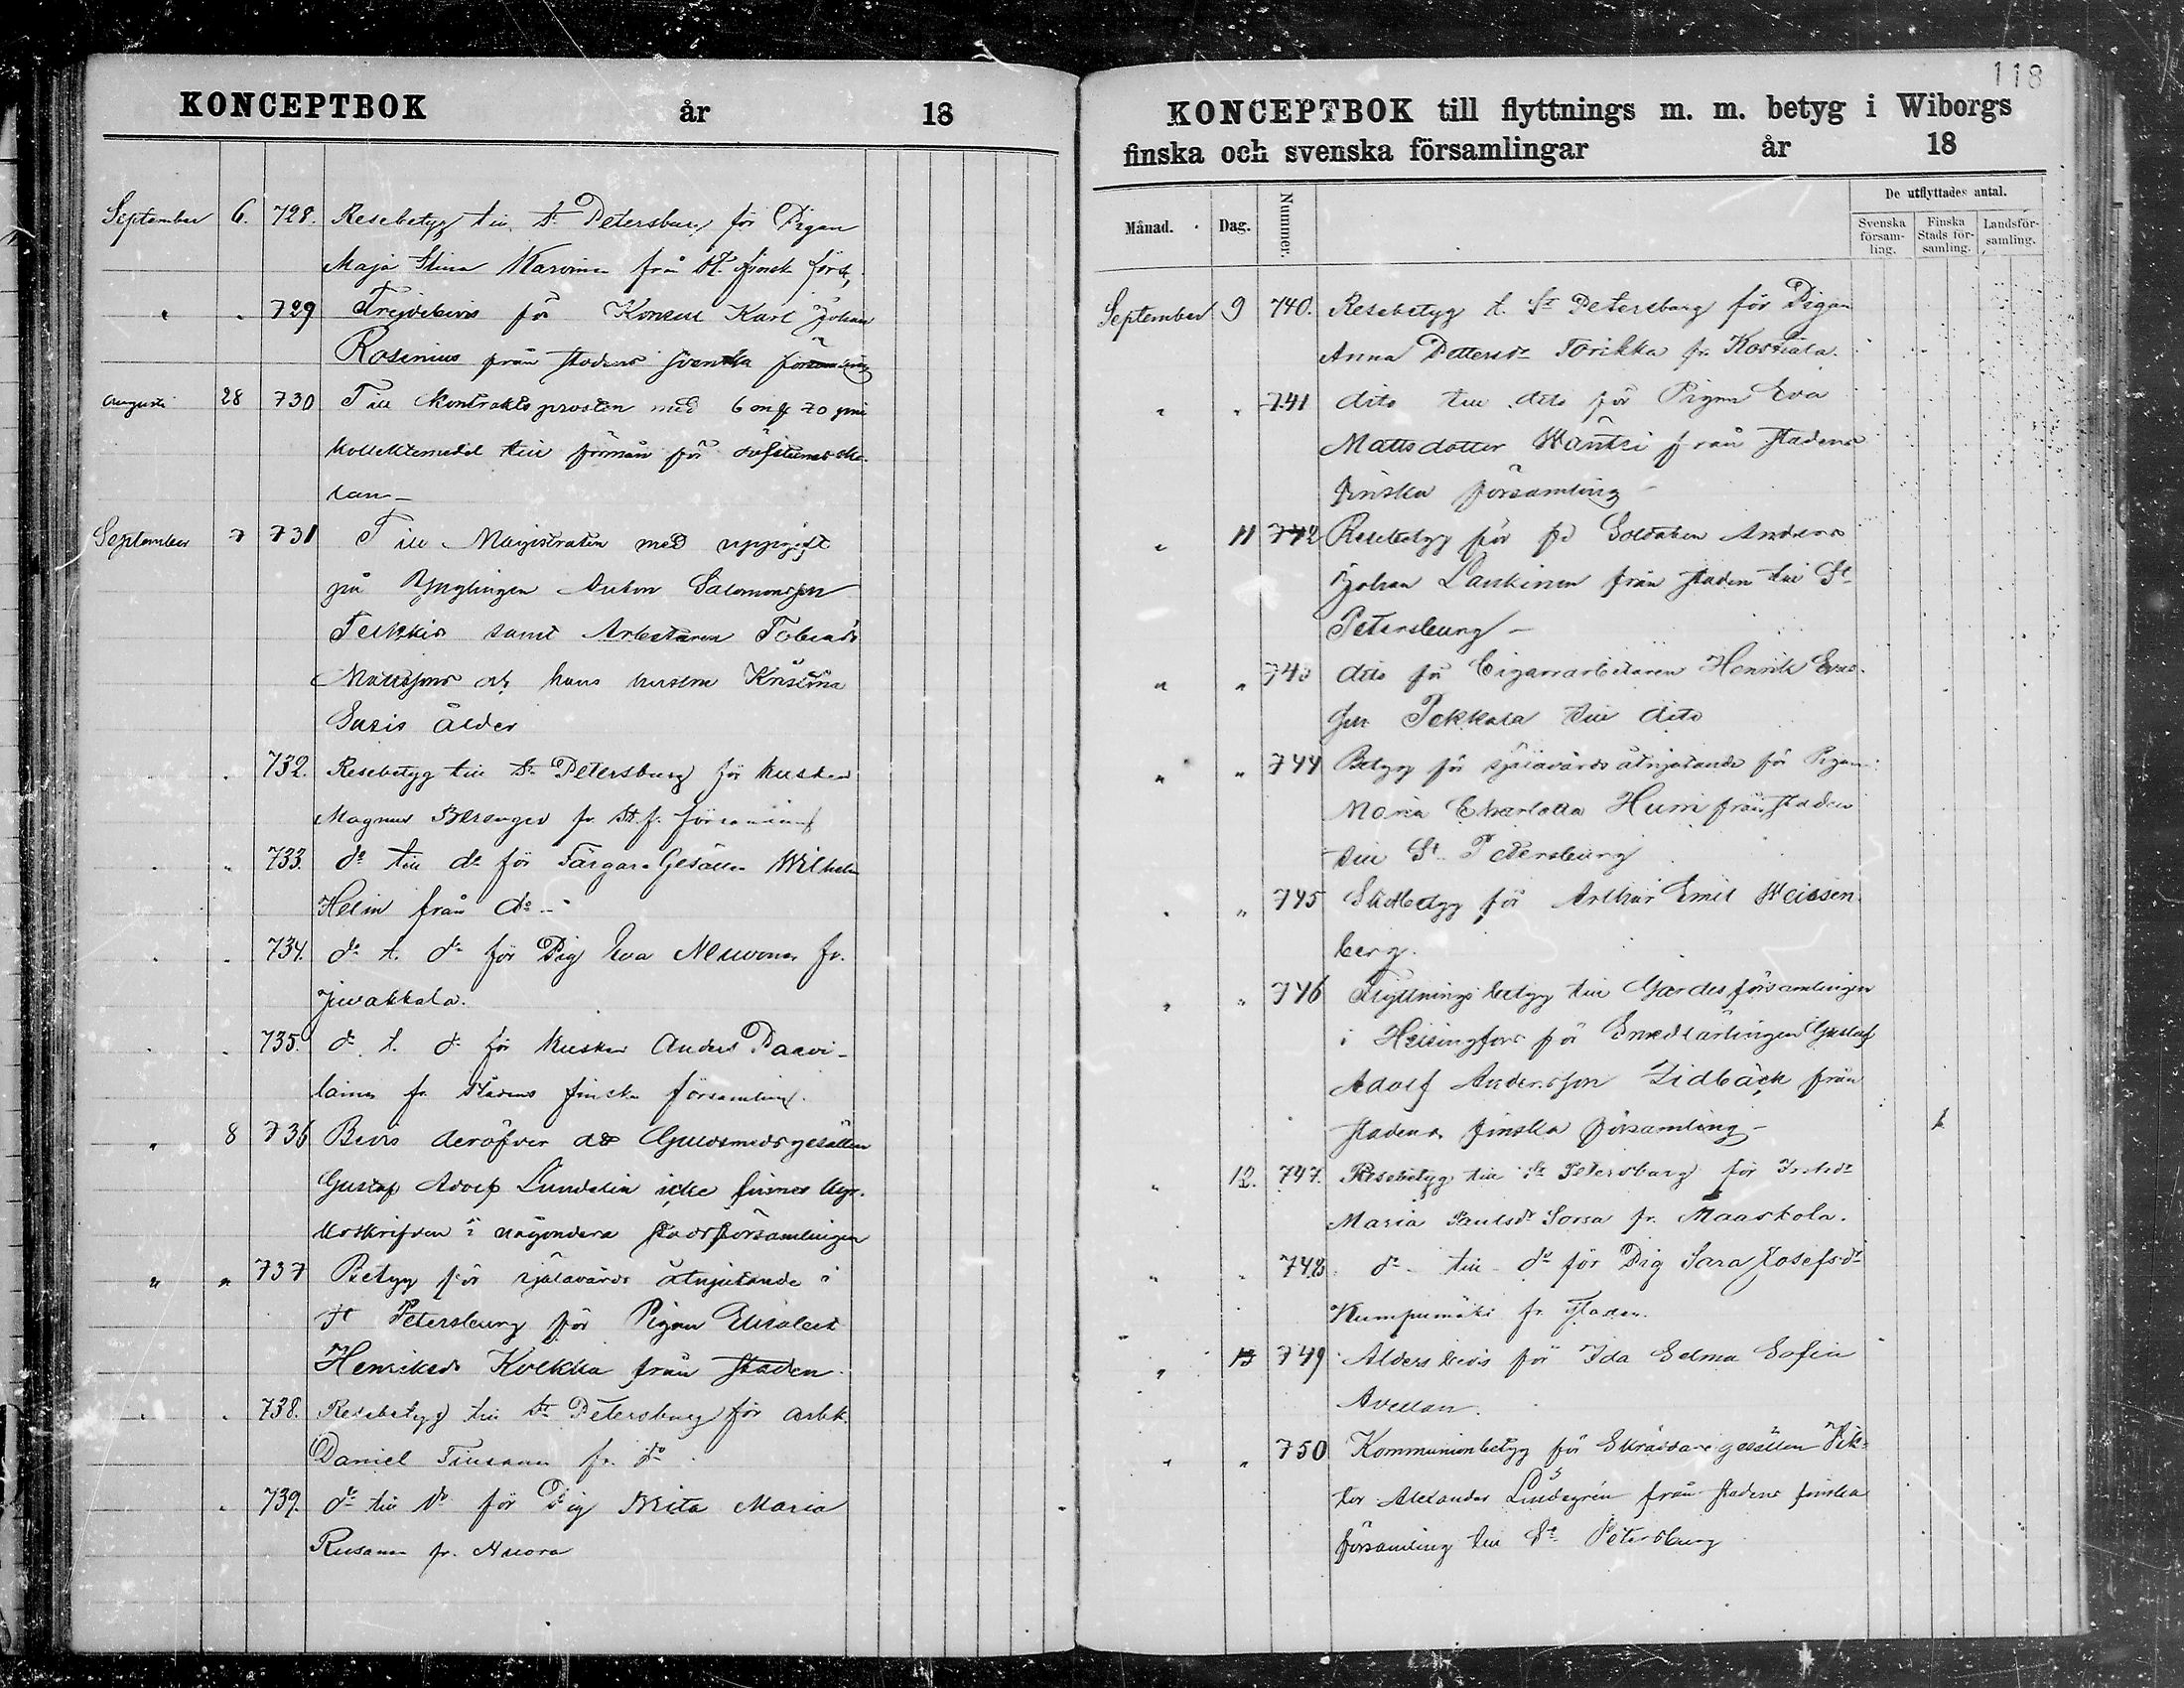 KONCEPTBOK år 18
September 6. 728. Resebetyg till St Petersburg för Pigan
Maja Stina Karvinen från St. finsk förs.
" " 729 Frejdebevis för Konsul Karl Johan
Rosenius från stadens svenska församling
Augusti 28 730 Till Kontraktsprosten med 6 mk 70 pni
kollektemedel till förmån för
September 7 731 Till Magistraten med uppgift
på Ynglingen Anton Salomonsson
samt Arbetaren Tobias
Mattssons och hans hustru Kristina
Susis ålder
" 732. Resebetyg till St Petersburg för kusken
Magnus fr. St. f. församling
" " 733. do till do för Färgare Gesällen Wilhelm
Helin från do
" " 734. do t. do för Pig Eva Neuvonen fr.
Juvakkala.
" " 735. do t. do för kusken Anders Paavi-
lainen fr. stadens finska församling.
" 8 736 Bevis deröfver att Guldsmedsgesällen
Gustaf Adolf Lundelin icke finnes kyr-
koskrifven i någondera stadsförsamlingen
" " 737 Betyg för själavårds åtnjutande i
St Petersburg för Pigan Elisabet
Henriksdr Kolkka från staden
" " 738. Resebetyg till St Petersburg för arbk.
Daniel Trusanen fr. do
" 739. do till do för Pig Maria
Rusanen fr. Nuora
118
KONCEPTBOK till flyttnings m. m. betyg i Wiborgs
finska och svenska församlingar år 18
Månad. Dag. Nummer. De utflyttades antal.
Svenska försam-ling. Finska Stads för-samling. Landsför-samling.
September 9 740. Resebetyg t. St Petersburg för Pigan
Anna Pettersdr Torikka fr. Kostiala.
" " 741 dito till dito för Pigan Eva
Mattsdotter Häntsi från stadens
finska församling
" 11 742 Resebetyg för fd Soldaten Anders
Johan Laukinen från staden till St
Petersburg
" " 743 dito för Cigarrarbetaren Henrik Evas-
son Pekkala till dito
" " 744 Betyg för själavårds åtnjutande för Pigan
Maria Charlotta Hurri från staden
till St Petersburg
" " 745 Skolbetyg för Arthur Emil Weissen-
berg.
" " 746 Flyttningsbetyg till Gardesförsamlingen
i Helsingfors för Smedlärlingen Gustaf
Adolf Andersson Lidbäck från
stadens finska församling 1
" 12. 747. Resebetyg till St Petersburg för
Maria Paulsdr Sorsa fr. Maaskola.
" " 748 do till do för Pig Sara Josefsdr
Kumpumäki fr. Staden.
" 13 749 Åldersbevis för Ida Selma Sofia
Avellan.
" " 750 Kommunionbetyg för Skräddaregesällen Vik-
tor Alexander Lindegrén från stadens finska
församling till St Petersburg